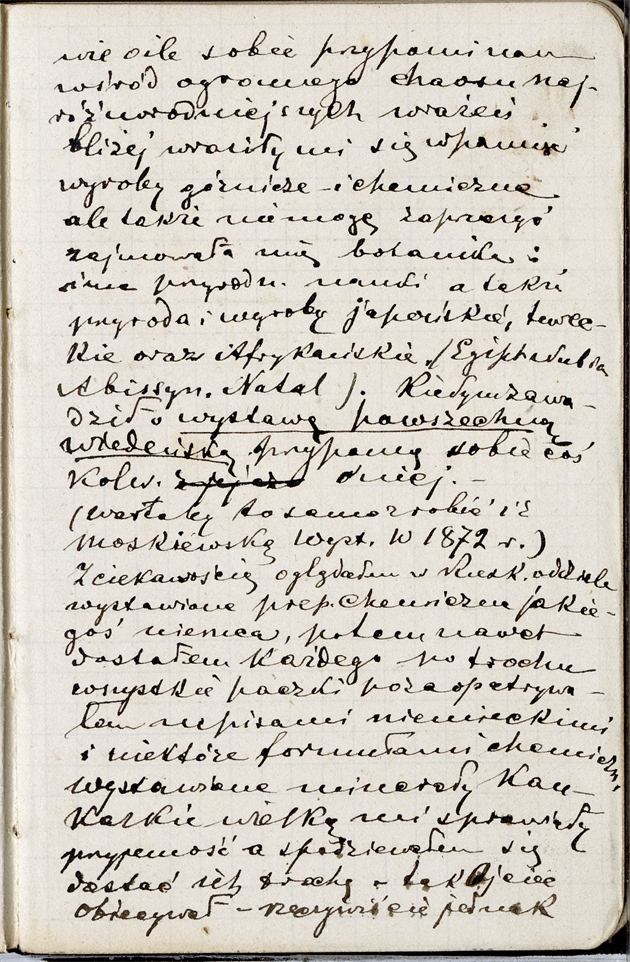 wie o ile sobie przypominam
wśród ogromnego chaosu naj-
różnorodniejszych wrażeń
bliżej wraziły mi się w pamięć
wyroby górnicze - i chemiczne
ale także nie mogę zaprzeczyć
zajmowała mię botanika i
inne przyrodn. nauki a także
przyroda i wyroby japońskie, turec-
kie oraz Afrykańskie (Egipt
Abissyn. Natal). Kiedym zawa-
dził o wystawę powszechną
wiedeńską przypomnę sobie coś
kolw. o niej. -
(wartałoby to samo zrobić i z
moskiewską wyst. W 1872 r.)
Z ciekawością oglądałem w Rusk. oddziele
wystawione prep. chemiczne jakie-
goś niemca, potem nawet
dostałem każdego po trochu
wszystkie paczki pozaopatrywa-
łem napisami niemieckimi
i niektóre formułami chemiczn.
wystawione minerały Kau-
kazkie wielką mi sprawiały
przyjemność a spodziewałem się
dostać ich trochę - tak Ojciec
obiecywał - rzeczywiście jednak